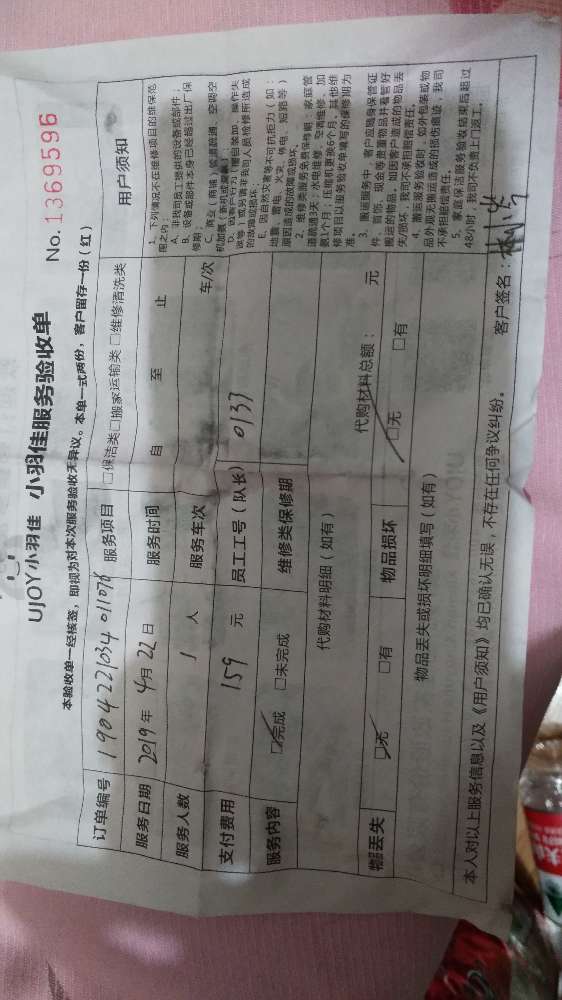 UJOY小羽佳 小羽佳服务验收单
No. 1369596
本验收单一经核签，即视为对本次服务验收无异议。本单一式两份，客户留存一份（红）
订单编号 190422103401107 服务项目 □保洁类□搬家运输类 □维修清洗类 用户须知
服务日期 2019年 4月 22日 服务时间 自 至 止
服务人数 1 人 服务车次 车/次
支付费用 159 元 员工工号（队长） 0137
服务内容 ☑完成 □未完成 维修类保修期
代购材料明细（如有） 代购材料总额： 元
物品丢失 ☑无 □有 物品损坏 ☑无 □有
物品丢失或损坏明细填写（如有）
1、下列情况不在维修项目的维保范
围之内：
A、非我司员工提供的设备或部件；
B、设备或部件本身已经超过出厂保
修期；
C、商业（商铺）管道疏通、空调空
E、因自然灾害等不可抗拒力（如：
地震、雷电、火灾、停电、短路等）
原因造成的故障或损坏。
2、维修类服务免费保修期：家庭管
道疏通3天；水电维修、空调维修、加
氨1个月；压缩机更换6个月，其他维
修项目以服务验收单填写的保修期为
准。
3、搬运服务中，客户应随身保管证
件、首饰、现金等贵重物品并看管好
搬运的物品，如因客户造成的物品丢
失/损坏，我司不承担赔偿责任。
4、搬运服务验收时，如外包装或物
品外观无搬运造成的损伤痕迹，我司
不承担赔偿责任。
5、家庭保洁服务验收结束后超过
48小时，我司不负责上门返工。
本人对以上服务信息以及《用户须知》均已确认无误，不存在任何争议纠纷。 客户签名：